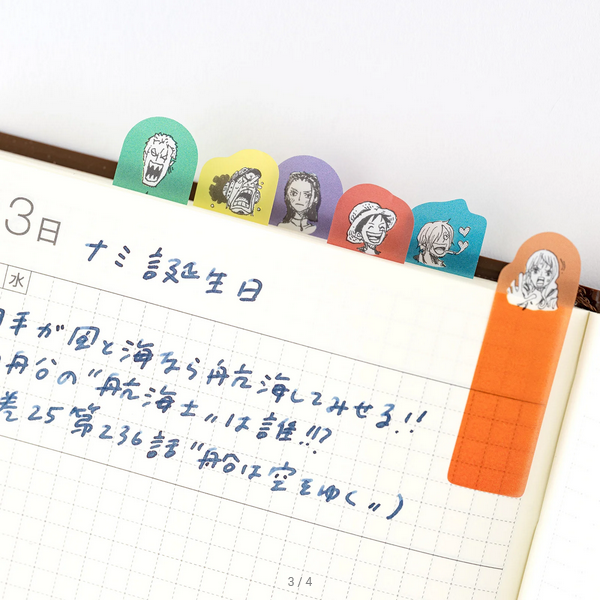 3日
ナミ誕生日
水
手が風と海なら航海してみせる!!
舟台の"航海士"は誰!!?
巻25第236話"船は空をゆく")
3 / 4